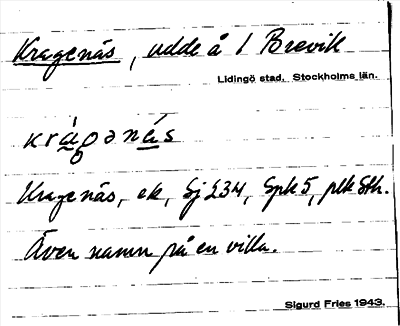 Kragenäs, udde å 1 Brevik
Lidingö stad. Stockholms län.
krágənä́s
Kragenäs, ek, Sj 234, Spk 5, plk Sth.
Även namn på en villa.
Sigurd Fries 1943.